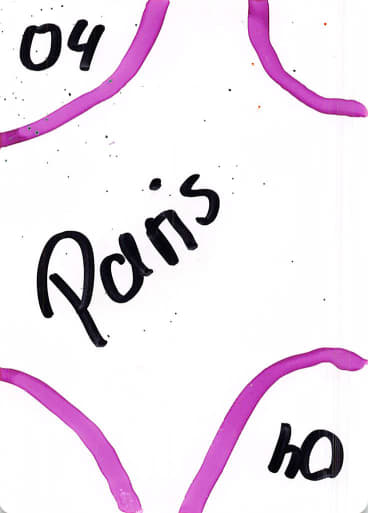 04
Paris
04